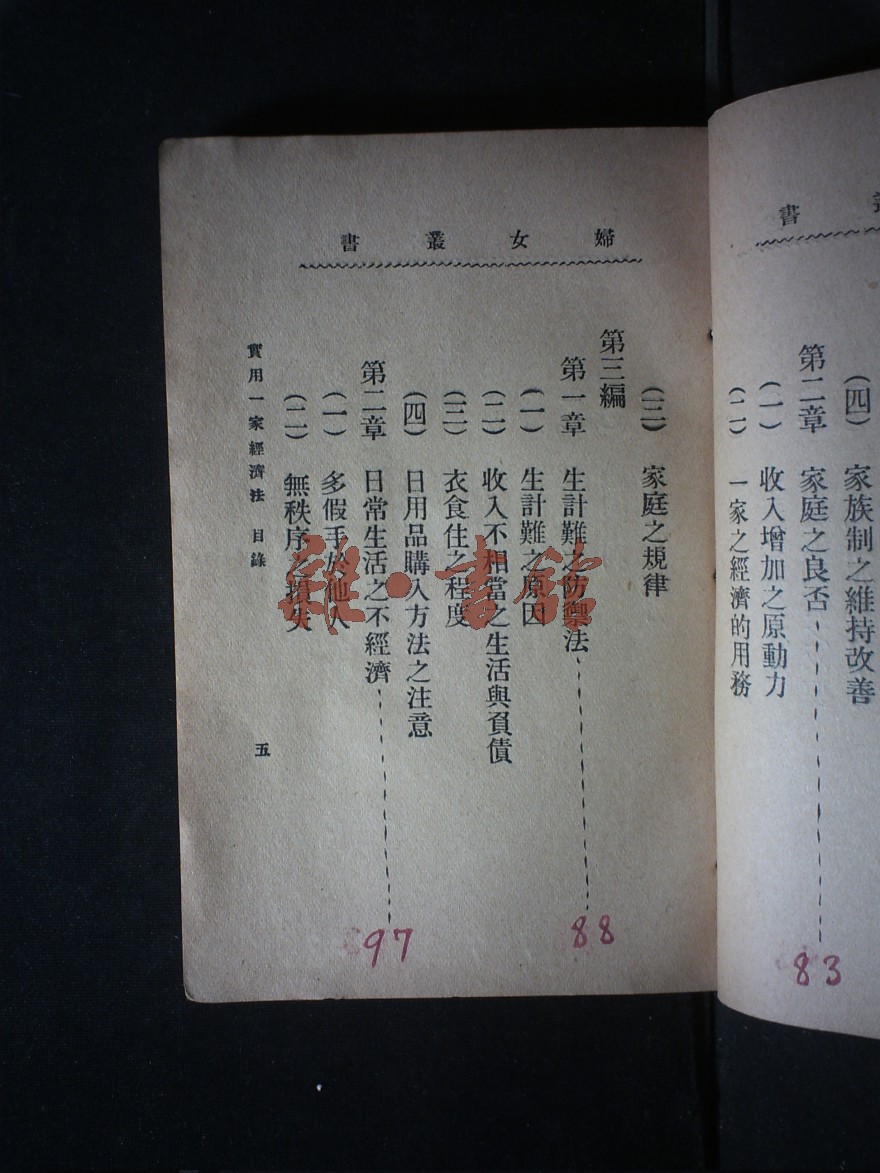 叢書
(四) 家族制之維持改善
第二章 家庭之良否
83
(一) 收入增加之原動力
(二) 一家之經濟的用務
婦女叢書
(三) 家庭之規律
第三編
第一章 生計難之防禦法
88
(一) 生計難之原因
(二) 收入不相當之生活與負債
(三) 衣食住之程度
(四) 日用品購入方法之注意
第二章 日常生活之不經濟
97
(一) 多假手於他人
(二) 無秩序之損失
實用一家經濟法 目錄
五
雜·書館